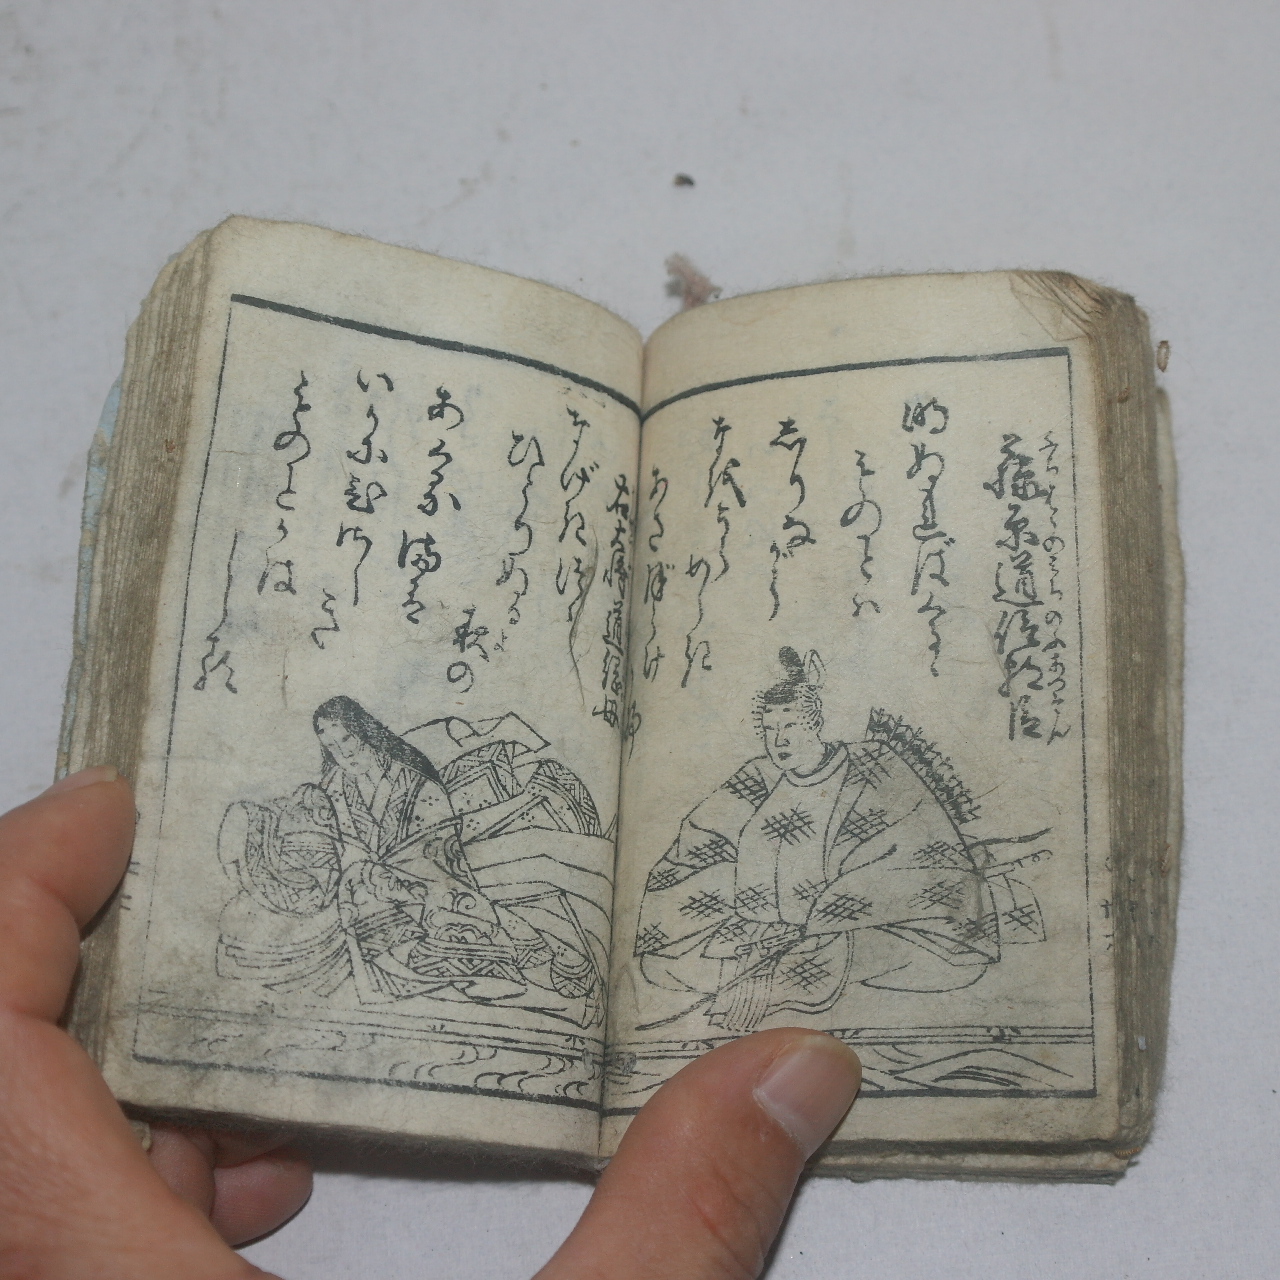 ふぢはらのみちのぶあつそん
藤原道信朝臣
明ぬればくるゝ
ものとハ
しりながら
なをうらめしき
あさぼらけ
右大将道綱母
なげきつゝ
ひとりぬる
夜の
あくるまは
いかに久し
き
ものとかは
しる